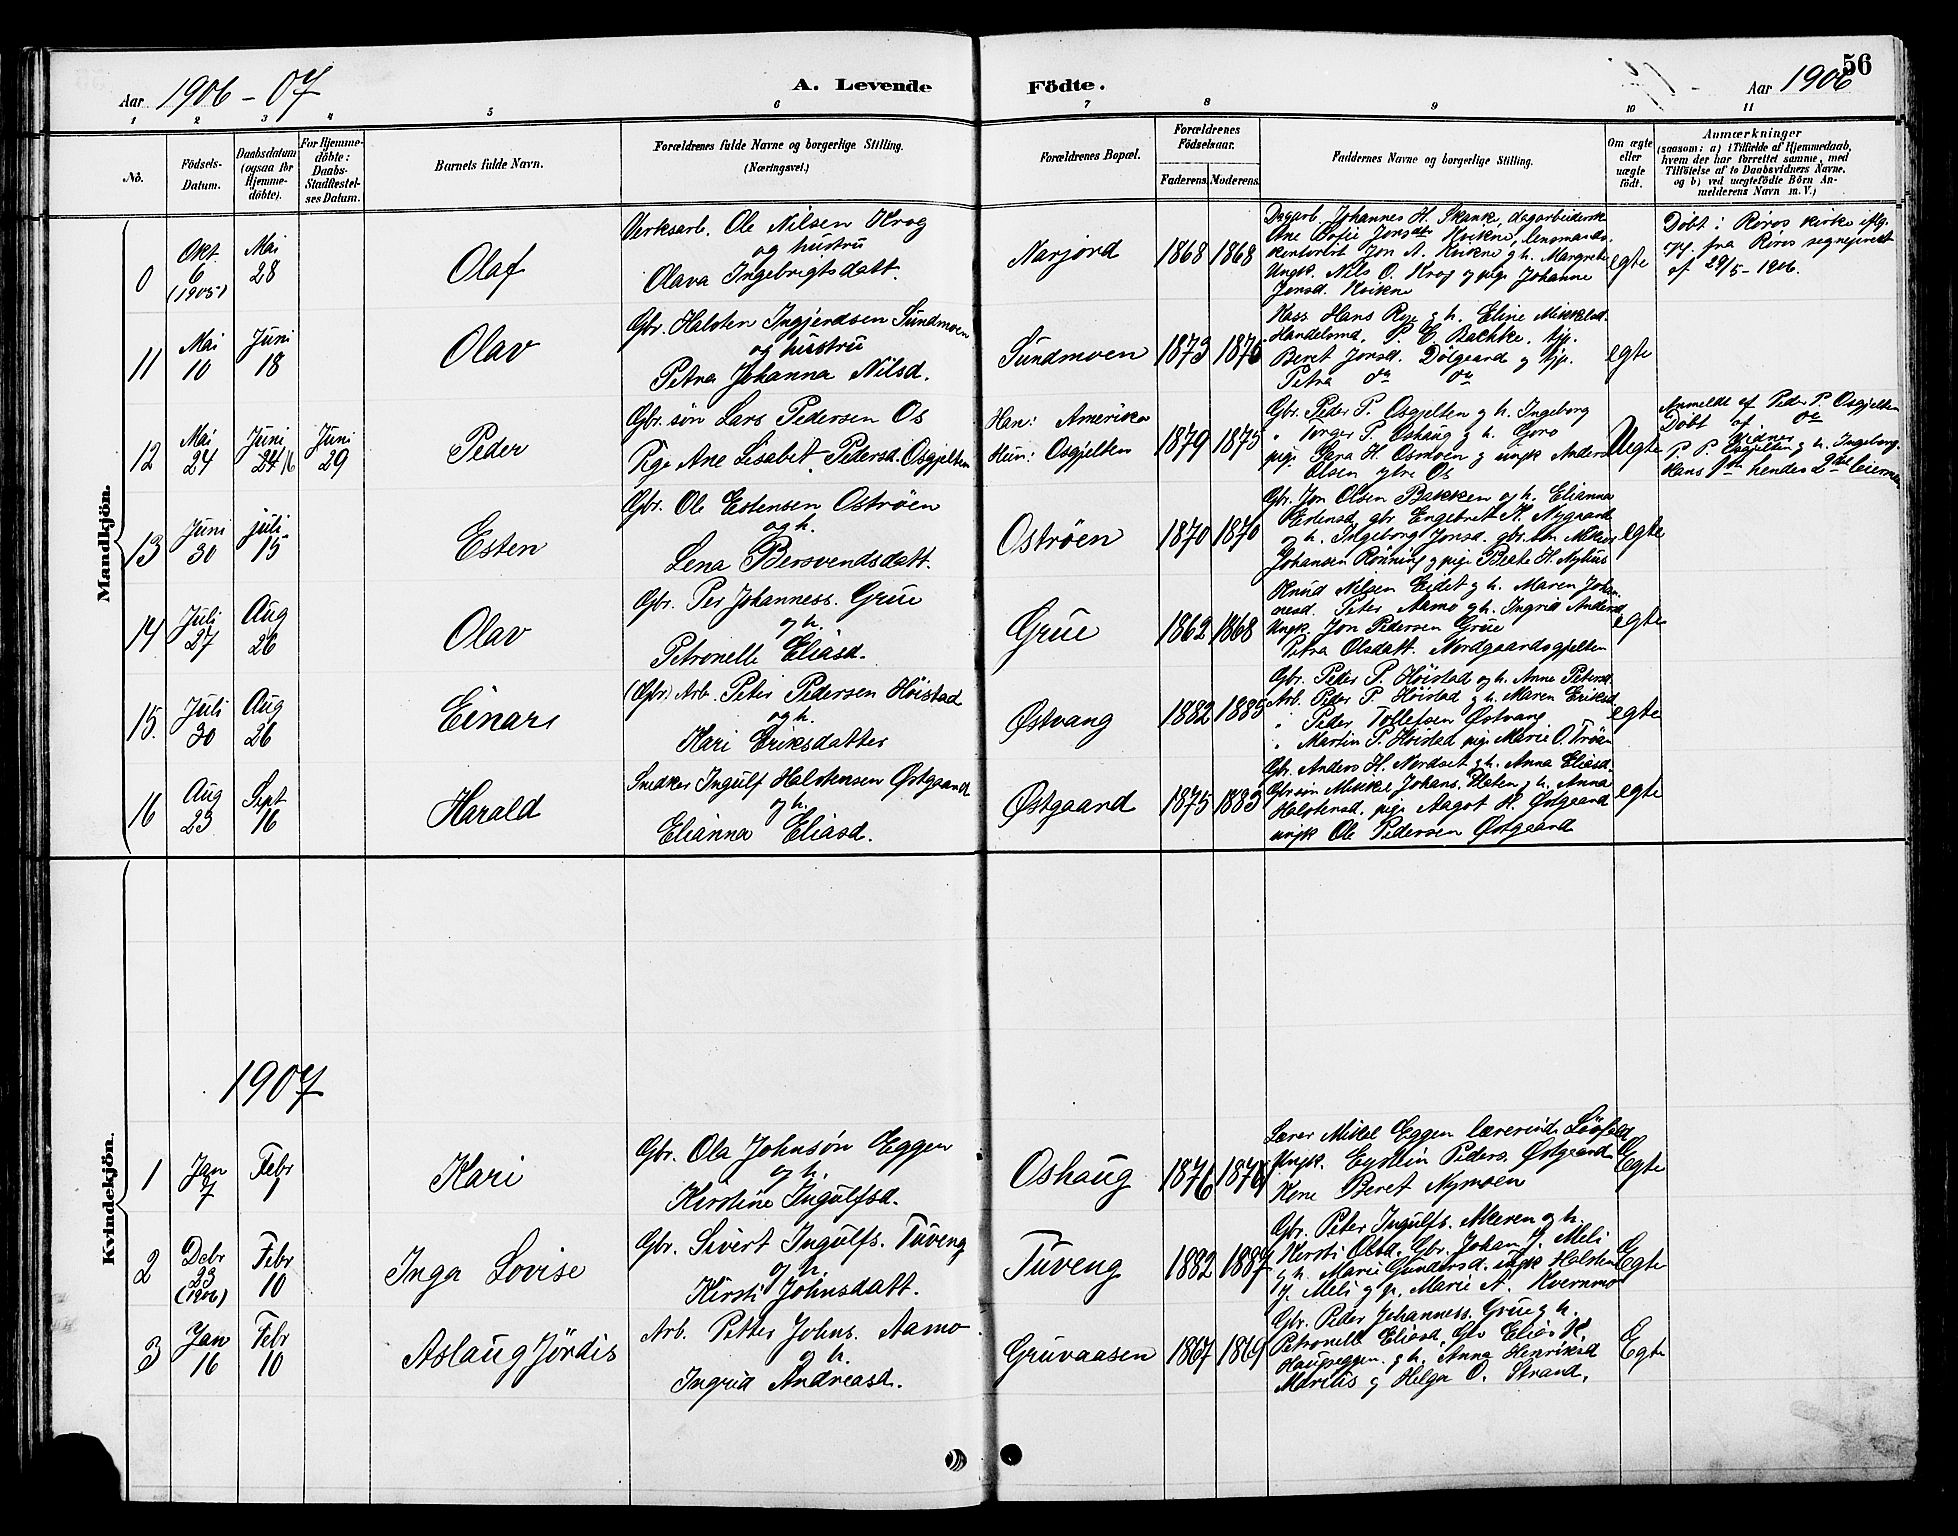 56
Aar 1906 - 07
A. Levende Födte.
Aar 1906
1 2 3 4 5 6 7 8 9 10 11
No.
Födsels-Datum.
Daabsdatum (ogsaa for Hjemme-döbte).
For Hjemme-döbte: Daabs-Stadfæstel-ses Datum.
Barnets fulde Navn.
Forældrenes fulde Navne og borgerlige Stilling. (Næringsvei.)
Forældrenes Bopæl.
Forældrenes Födselsaar.
Faderens. Moderens.
Faddernes Navne og borgerlige Stilling.
Om ægte eller uægte födt.
Anmærkninger
(saasom: a) i Tilfælde af Hjemmedaab, hvem der har forrettet samme, med Tilföielse af to Daabsvidners Navne, og b) ved uægtefödte Börn An-melderens Navn m. V.)
Mandkjön.
0
Okt. 6 (1905)
Mai 28
Olaf
Verksarb. Ole Nilsen Krog
og hustru
Olava Ingebrigtsdatt.
Narjord
1868 1868
Dagarb. Johannes H. Skank, dagarbeidersk
Ane Sofie Jonsdt Kvikne, lensmands-
kontorist Jon A. Kvikne g h. Margrete
Ungk. Nils O. Krog g pige Johanne
Jonsd. Kvikne
egte
Döbt i Røros kirke iflg.
opg. fra Røros sogneprest
af 29/5-1906.
11
Mai 10
Juni 18
Olav
Gbr. Halsten Ingjerdsen Sundmoen
og hustru
Petra Johanna Nilsd.
Sundmoen
1873 1876
Hans Rye g h. Eline Mikkelsd.
Handelsmd. P. E. Bachke, tjp.
Beret Jonsd. Dölgaard g tjp.
Petra do do
egte
12
Mai 24
Juni 24 16
Juni 29
Peder
Gbr. søn Lars Pedersen Os
Pige Ane Lisabet Pedersd. Osgjelten
Han: Amerika
Hun: Osgjelten
1879 1875
Gbr. Peder P. Osgjelten g h. Ingeborg
" Torger P. Oshaug g h. Goro
pige Sara H. Osmoen g ungk Anders
Olsen ytre Os
Uegte
Anmeldt af Peder P. Osgjelten
Döbt af do
Vidner
P. P. Osgjelten g h. Ingeborg.
Hans 1ste hendes 2det leierm
13
Juni 30
juli 15
Esten
Gbr. Ole Estensen Oströen
og h.
Lena Bersvendsdatt.
Oströen
1870 1870
Gbr. Jon Olsen Bakken og h. Elianna
Estensd. gbr Engebret K. Nygaard
og h. Ingeborg Jonsd. gbr. søn
Johansen Rønning g pige Beate H. Nyhus
egte
14
Juli 27
Aug 26
Olav
Gbr. Per Johanness. Grue
og h.
Petronelle Eliasd.
Grue
1862 1868
Knud Nilsen Eidet g h. Maren Johan-
nesd. Peter Aamo g h. Ingrid Andersd
Ungk. Jon Pedersen Grue
Petra Olsdatt. Nordgaardsgjelten
egte
15.
Juli 30
Aug 26
Einar
(Gbr) Arb. Peter Pedersen Höistad
og h.
Kari Eriksdatter
Østvang
1882 1885
Gbr. Peder P. Höistad og h. Anne Petersd.
Arb. Peder P. Höistad g h. Maren Eriksd
" Peder Tollefsen Østvang
" Martin P. Höistad pige Marie O. Tröan
egte
16
Aug 23
Sept 16
Harald
Snedker Ingulf Halstensen Østgaard
og h.
Elianna Eliasd.
Østgaard
1875 1883
Gbr. Anders H. Nordset g h. Anna Eliasd.
Gbrsøn Mikkel Johans. g h. Anna
Halstensd. pige Aagot H. Østgaard
ungk Ole Pedersen Østgaard
egte
Kvindekjön.
1907
1
Jan 7
Febr 1
Kari
Gbr. Ola Johnsön Eggen
og h.
Kirstine Ingulfsd.
Oshaug
1876
Lærer Mikal Eggen lærerinde
Ungk. Eystein Peders. Østgaard
Kone Beret Nymoen
Egte
2
Debr 23 (1906)
Febr 10
Inga Lovise
Gbr. Sivert Ingulfs. Tuveng
og h.
Kirsti Johnsdatt.
Tuveng
1882 1884
Gbr. Peter Ingulfs. Moren og h.
Kirsti Olsd. Gbr. Johan J. Meli
g h. Marie Gundersd. ungk Halsten
J. Meli g p. Marie A. Kvernmo
Egte
3
Jan 16
Febr 10
Aslaug Jördis
Arb. Petter Johns. Aamo
og h.
Ingrid Andreasd.
Gruvaasen
1867 1869
Gbr. Peder Johanness. Grue g h.
Petronelle Eliasd. Gbr Elias K
Haugseggen. g h. Anna Henriksd
Marius g Helga O. Strand.
Egte